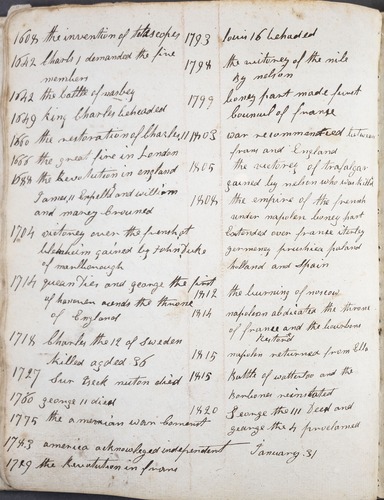 1608 the invention of telescopes
1642 Charls 1 demanded the five
members
1642 the battle of nasbey
1649 king Charles beheaded
1660 the restoration of Charles 11
1666 the great fire in London
1688 the Revolution in england
James 11 Expelld and william
and marey Crouned
1704 victorey over the french at
blenheim gained by John Duke
of marlborough
1714 queen Dies and george the first
of hanover acends the throne
of England
1718 Charles the 12 of Sweden
killed aged 36
1727 Sur neuton died
1760 george 11 died
1775 the amerian warr
1783 america acknowleged independent
1789 the Revolution in frans
1793 louis 16 behaded
1798 the victorey of the nile
by nelson
1799 boney part made first
Counsul of franse
1803 war recommendced between
frans and England
1805 the victorey of trafalgar
gained by nelson who was kild
1808 the empire of the french
under napolen boney part
Extended over franse itarley
germeney prushica poland
holland and Spain
1812 the burning of moscow
1814 napoleon abdicated the throne
of france and the bourbons
Restord
1815 napolen returned from Elba
1815 Battle of watterloo and the
Bonbones
1820 George the 111 Deed and
george the 4 proclamed
January 31